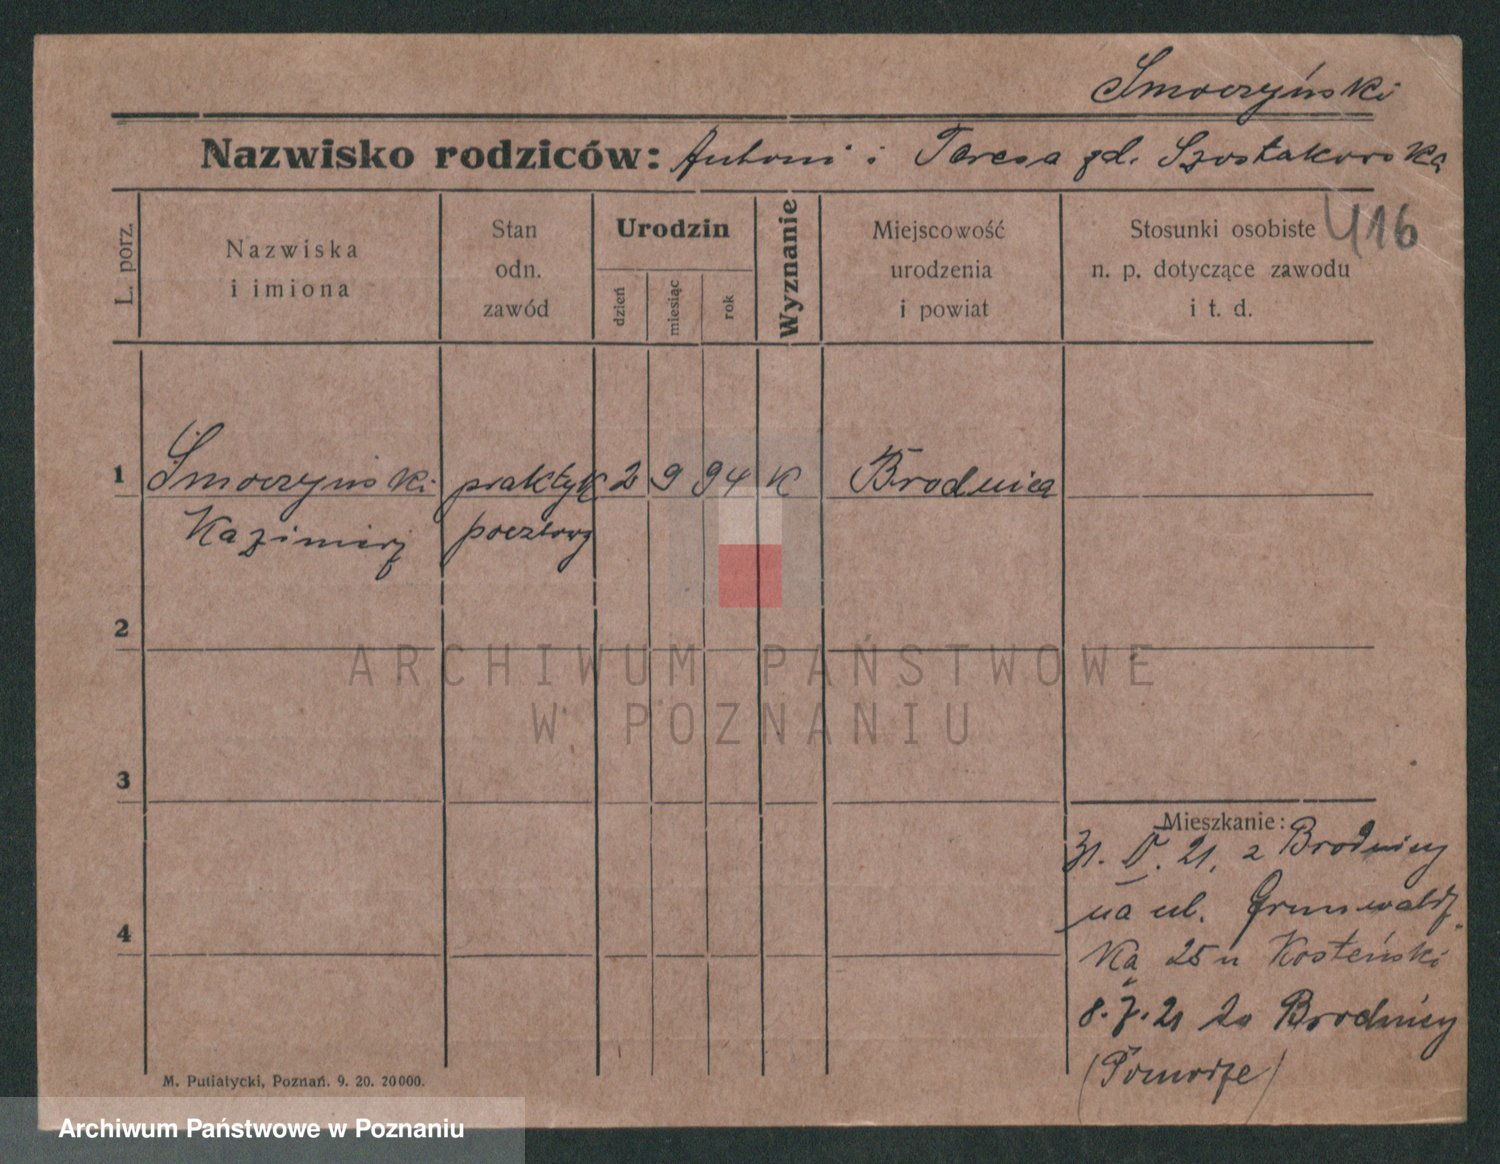 Smoczyński
Nazwisko rodziców: Antoni i Teresa zd. Szostakowska
416
L. porz.
Nazwiska
i imiona
Stan
odn.
zawód
Urodzin
dzień
miesiąc
rok
Wyznanie
Miejscowość
urodzenia
i powiat
Stosunki osobiste
n. p. dotyczące zawodu
i t. d.
1 Smoczyński praktyk 2 9 94 K Brodnica
Kazimierz pocztowy
2
3
4
Mieszkanie:
31. V. 21. z Brodnicy
na ul. Grunwaldz
ka 25 u Kosteński
8. 7. 21 do Brodnicy
(Pomorze)
M. Putiatycki, Poznań. 9. 20. 20000.
ARCHIWUM PAŃSTWOWE
W POZNANIU
Archiwum Państwowe w Poznaniu